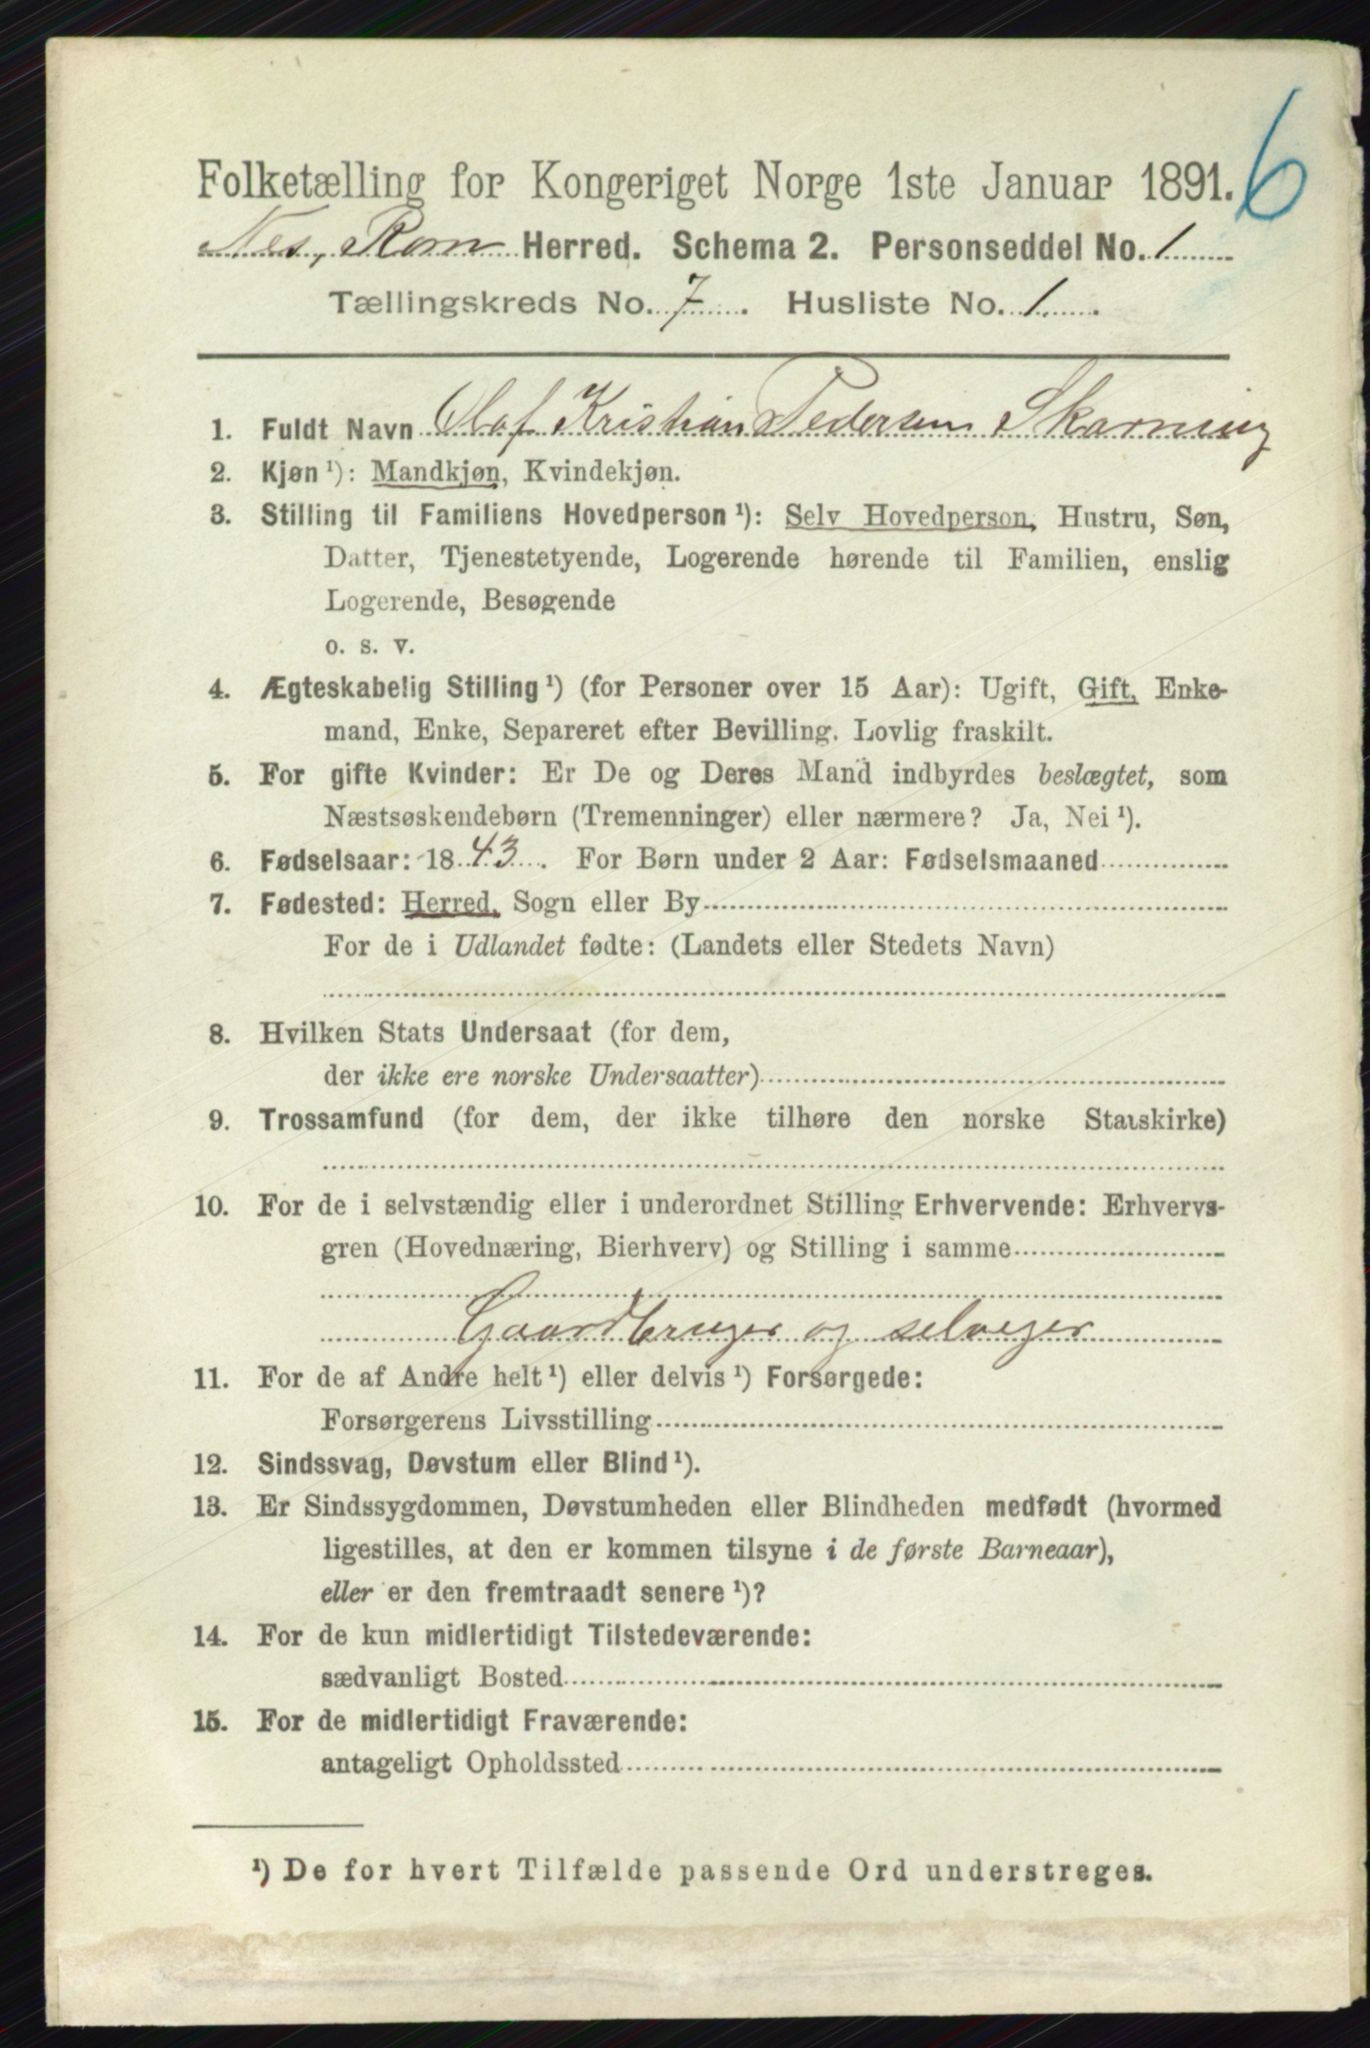 6
Folketælling for Kongeriget Norge 1ste Januar 1891.
Nes, Rom Herred. Schema 2. Personseddel No. 1
Tællingskreds No. 7. Husliste No. 1.
1. Fuldt Navn Olaf Kristian Pedersen Skarning
2. Kjøn ¹): Mandkjøn, Kvindekjøn.
3. Stilling til Familiens Hovedperson ¹): Selv Hovedperson, Hustru, Søn,
Datter, Tjenestetyende, Logerende hørende til Familien, enslig
Logerende, Besøgende
o. s. v.
4. Ægteskabelig Stilling ¹) (for Personer over 15 Aar): Ugift, Gift, Enke-
mand, Enke, Separeret efter Bevilling. Lovlig fraskilt.
5. For gifte Kvinder: Er De og Deres Mand indbyrdes beslægtet, som
Næstsøskendebørn (Tremenninger) eller nærmere? Ja, Nei ¹).
6. Fødselsaar: 1843. For Børn under 2 Aar: Fødselsmaaned
7. Fødested: Herred, Sogn eller By
For de i Udlandet fødte: (Landets eller Stedets Navn)
8. Hvilken Stats Undersaat (for dem,
der ikke ere norske Undersaatter)
9. Trossamfund (for dem, der ikke tilhøre den norske Statskirke)
10. For de i selvstændig eller i underordnet Stilling Erhvervende: Erhvervs-
gren (Hovednæring, Bierhverv) og Stilling i samme
Gaardbruger og selveier
11. For de af Andre helt ¹) eller delvis ¹) Forsørgede:
Forsørgerens Livsstilling
12. Sindssvag, Døvstum eller Blind ¹).
13. Er Sindssygdommen, Døvstumheden eller Blindheden medfødt (hvormed
ligestilles, at den er kommen tilsyne i de første Barneaar),
eller er den fremtraadt senere ¹)?
14. For de kun midlertidigt Tilstedeværende:
sædvanligt Bosted
15. For de midlertidigt Fraværende:
antageligt Opholdssted
¹) De for hvert Tilfælde passende Ord understreges.